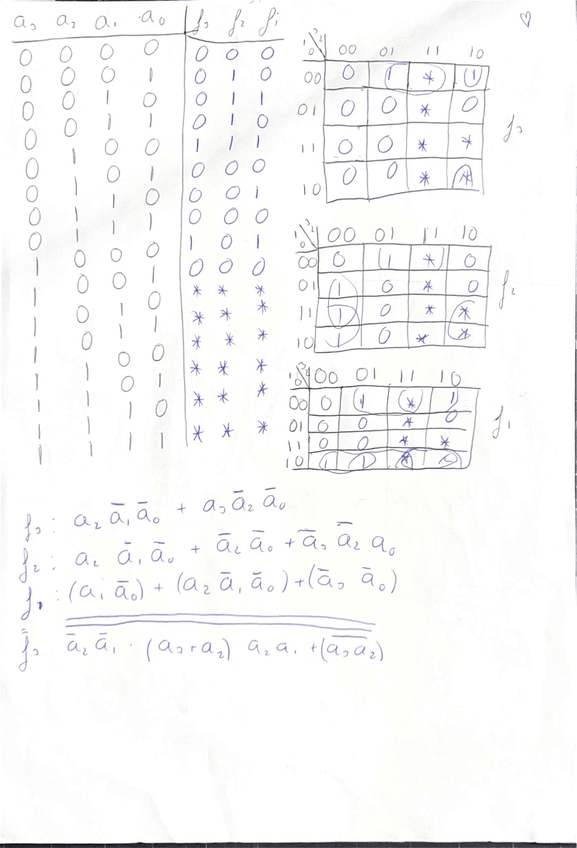 a₃ a₂ a₁ a₀ f₃ f₂ f₁
0 0 0 0 0 0 0
0 0 0 1 0 1 0
0 0 1 0 0 1 1
0 0 1 1 0 1 0
0 1 0 0 1 1 1
0 1 0 1 0 0 0
0 1 1 0 0 0 1
0 1 1 1 0 0 0
1 0 0 0 1 0 1
1 0 0 1 0 0 0
1 0 1 0 * * *
1 0 1 1 * * *
1 1 0 0 * * *
1 1 0 1 * * *
1 1 1 0 * * *
1 1 1 1 * * *
00 01 11 10
00 0 1 * 1
01 0 0 * 0
11 0 0 * *
10 0 0 * *
f₃
00 01 11 10
00 0 1 * 0
01 1 0 * 0
11 1 0 * *
10 1 0 * *
f₂
00 01 11 10
00 0 1 * 1
01 0 0 * 0
11 0 0 * *
10 1 1 * *
f₁
f₃: a₂ ā₁ ā₀ + a₃ ā₂ ā₀
f₂: a₂ ā₁ ā₀ + ā₂ ā₀ + ā₃ ā₂ a₀
f₁: (a₁ ā₀) + (a₂ ā₁ ā₀) + (ā₃ ā₀)
f₃ ā₂ ā₁ · (a₃ + a₂) a₂ a₁ + (a̅₃̅a̅₂̅)